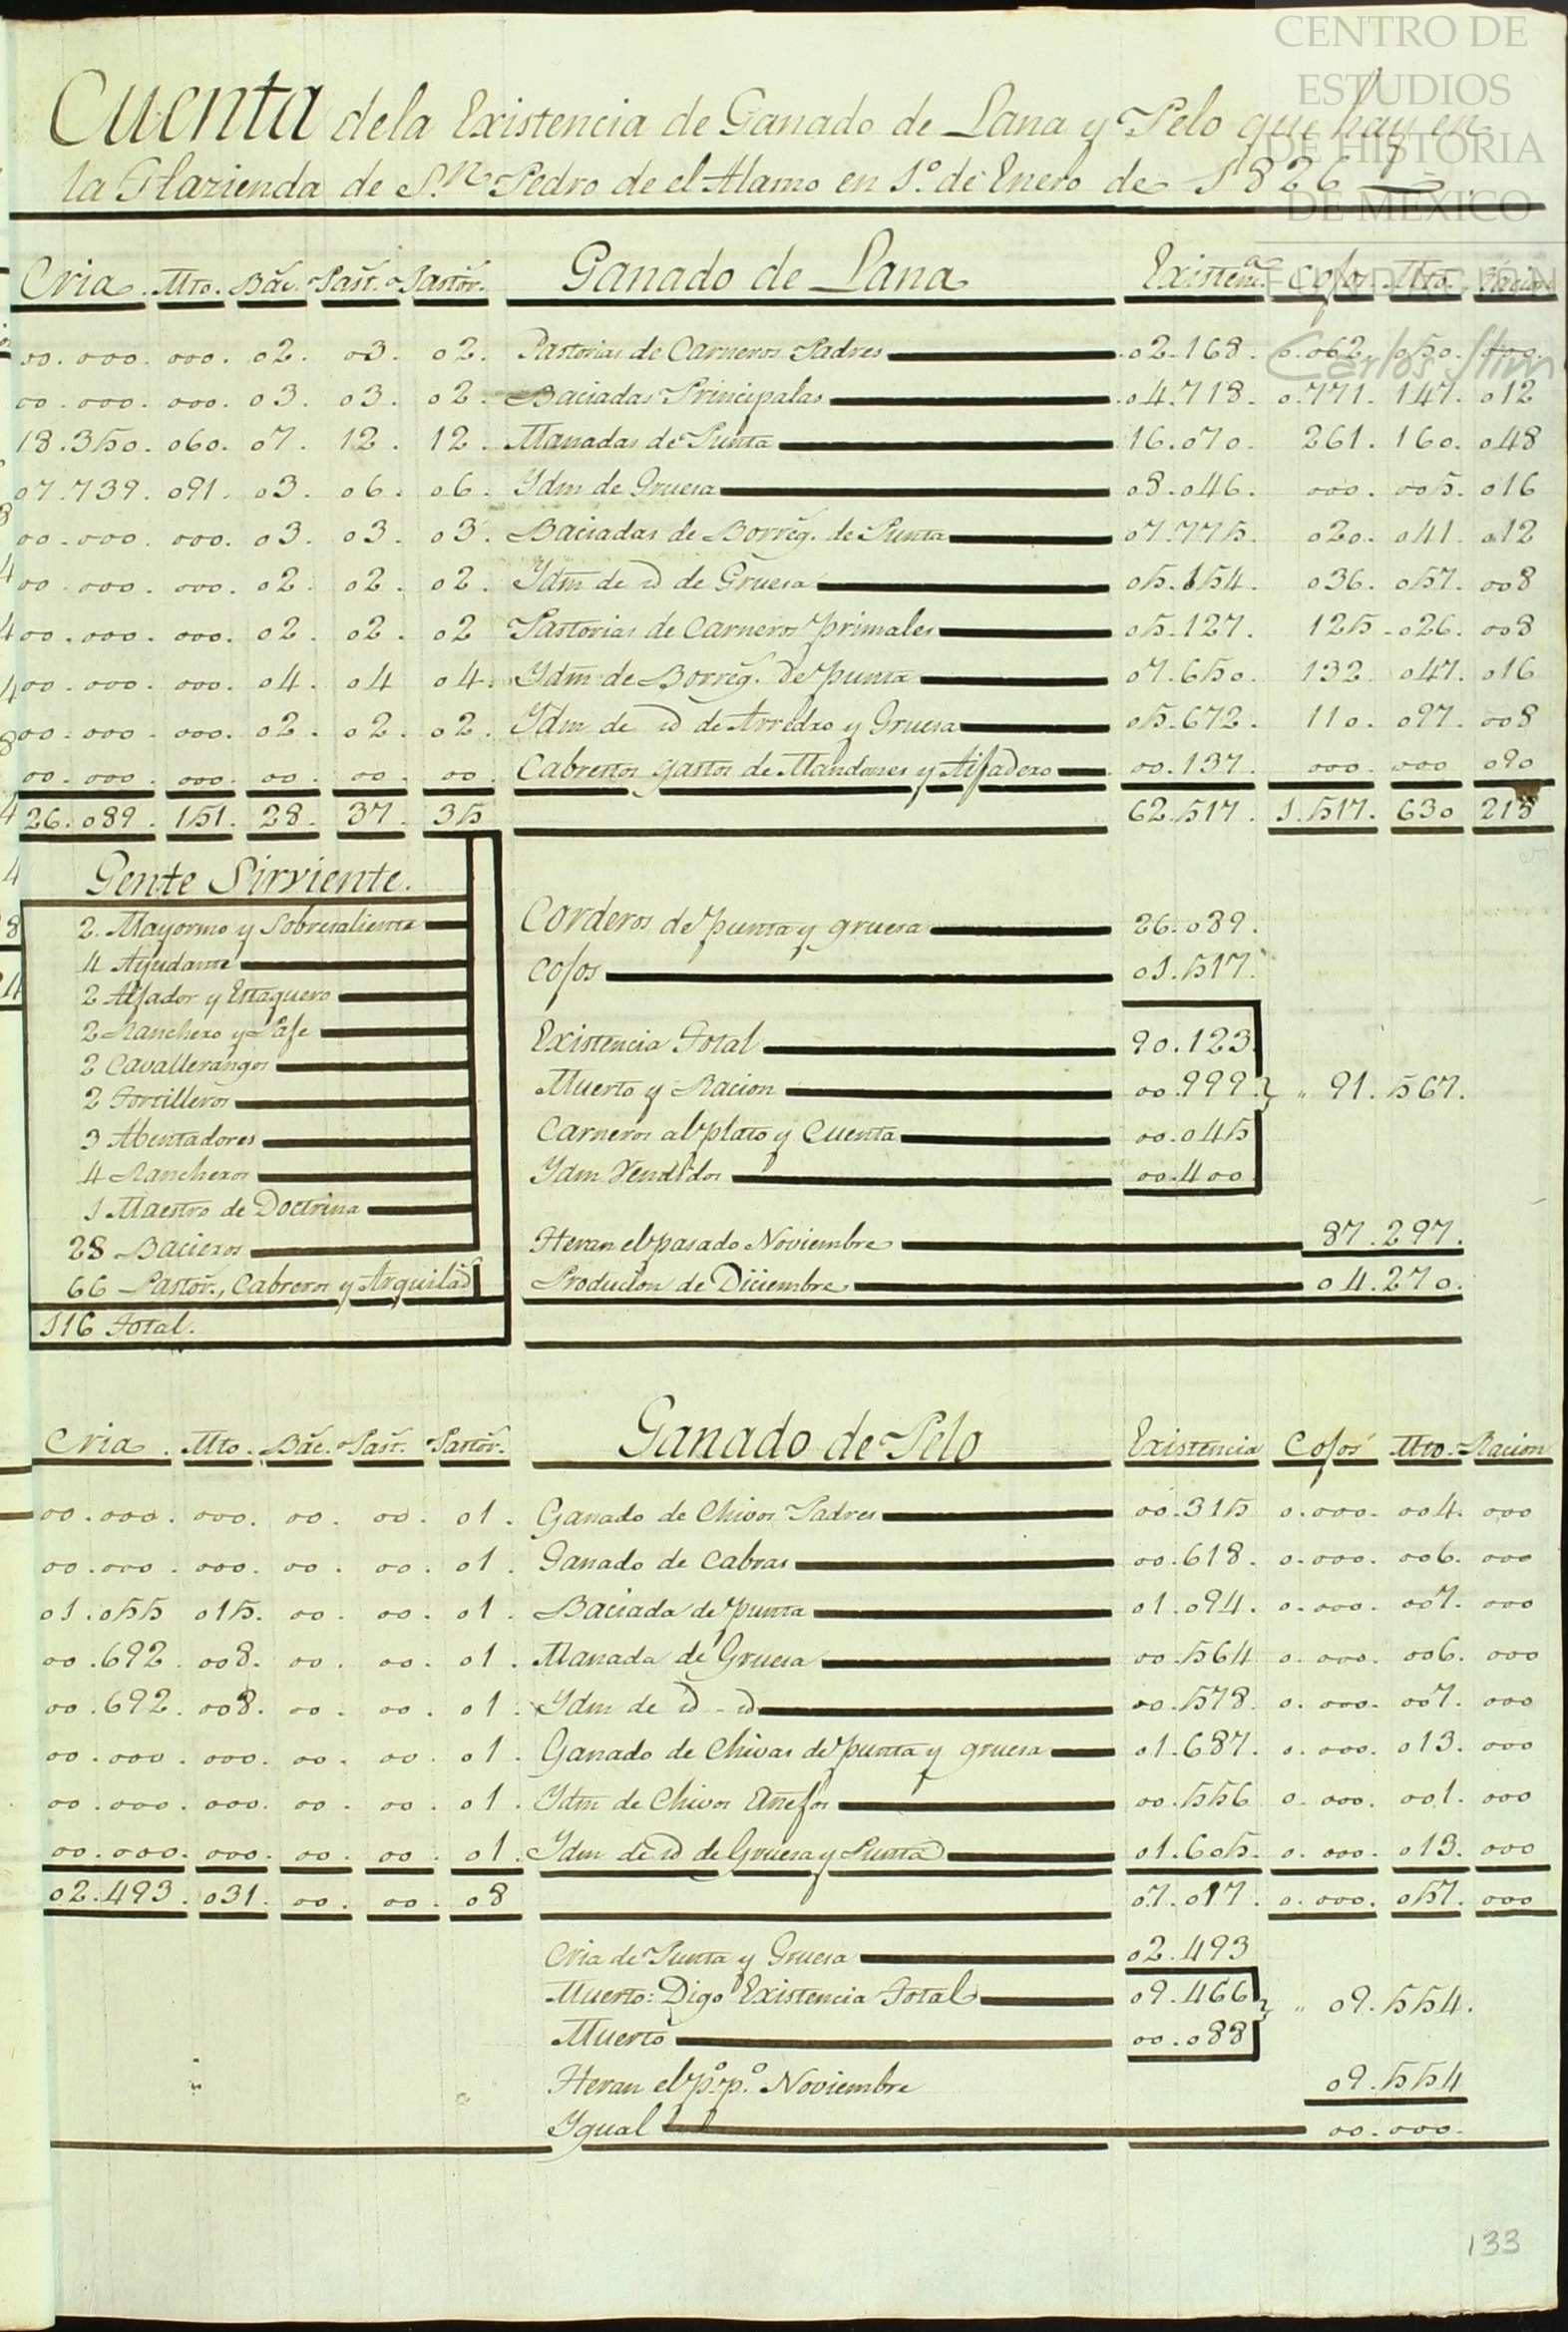 CENTRO DE
ESTUDIOS
DE HISTORIA
DE MÉXICO
FUNDACIÓN
Carlos Slim
Cuenta dela Existencia de Ganado de Lana y Pelo que hay en
la Hazienda de S.n Pedro de el Alamo en 1.o de Enero de 1826
Cria. Mto. Bac. Past. Pastor. Ganado de Lana Existen.a Cojos Mto. Racion
00.000. 000. 02. 03. 02. Pastorias de Carneros Padres 02.168. 0.062. 050. 000.
00.000. 000. 03. 03. 02. Baciadas Principalas 04.718. 0.771. 147. 012
18.350. 060. 07. 12. 12. Manadas de Punta 16.070. 261. 160. 048
07.739. 091. 03. 06. 06. Ydm de Gruesa 08.046. 000. 005. 016
00.000. 000. 03. 03. 03. Baciadas de Borreg. de Punta 07.775. 020. 041. 012
00.000. 000. 02. 02. 02. Ydm de id de Gruesa 05.154. 036. 057. 008
00.000. 000. 02. 02. 02 Pastorias de Carneros primales 05.127. 125. 026. 008
00.000. 000. 04. 04 04. Ydm de Borreg. de punta 07.650. 132 047. 016
00.000. 000. 02. 02. 02. Ydm de id de Arredro y Gruesa 05.672. 110. 097. 008
00.000. 000. 00. 00. 00. Cabrestos gastos de Mandones y Aijadero 00.137. 000. 000 090
26.089. 151. 28. 37. 35 62.517. 1.517. 630 218
Gente Sirviente.
2. Mayormo y Sobresaliente
4 Ayudante
2 Alfador y Estaquero
2 Ranchero y Jafe
2 Cavallerangos
2 Tortilleros
3 Abentadores
4 Rancheros
1 Maestro de Doctrina
28 Bacieros
66 Pastor., Cabreros y Arquilad
116 Total.
Corderos de punta y gruesa 26.089.
Cojos 01.517.
Existencia Total 90.123
Muerto y Racion 00.999. 91.567.
Carneros al plato y Cuenta 00.045
Ydm Vendidos 00.400
Heran el pasado Noviembre 87.297.
Producion de Diciembre 04.270.
Cria. Mto. Bac. Past. Pastor. Ganado de Pelo Existencia Cojos Mto. Racion
00.000. 000. 00. 00. 01. Ganado de Chivos Padres 00.315 0.000. 004. 000
00.000. 000. 00. 00. 01. Ganado de Cabras 00.618. 0.000. 006. 000
01.055 015. 00. 00. 01. Baciada de punta 01.094. 0.000. 007. 000
00.692. 008. 00. 00. 01. Manada de Gruesa 00.564 0.000. 006. 000
00.692. 008. 00. 00. 01. Ydm de id - id 00.578. 0.000. 007. 000
00.000. 000. 00. 00. 01. Ganado de Chivas de punta y gruesa 01.687. 0.000. 013. 000
00.000. 000. 00. 00. 01. Ydm de Chivos Añejos 00.556 0.000. 001. 000
00.000. 000. 00. 00. 01. Ydm de id de Gruesa y Punta 01.605. 0.000. 013. 000
02.493. 031. 00. 00. 08 07.017. 0.000. 057. 000
Cria de Punta y Gruesa 02.493
Muerto: Digo Existencia Total 09.466 09.554.
Muerto 00.088
Heran el p.o p.o Noviembre 09.554
Ygual 00.000.
133